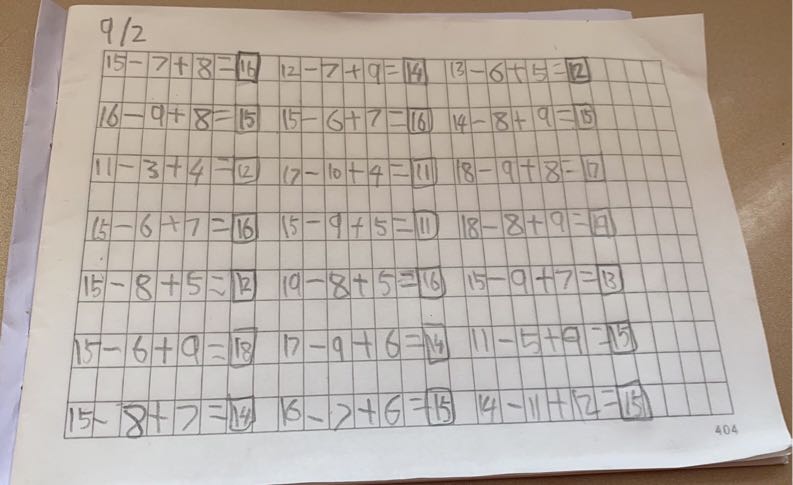 9/2
15-7+8=16 12-7+9=14 13-6+5=12
16-9+8=15 15-6+7=16 14-8+9=15
11-3+4=12 17-10+4=11 18-9+8=17
15-6+7=16 15-9+5=11 18-8+9=19
15-8+5=12 19-8+5=16 15-9+7=13
15-6+9=18 17-9+6=14 11-5+9=15
15-8+7=14 16-7+6=15 14-11+12=15
404